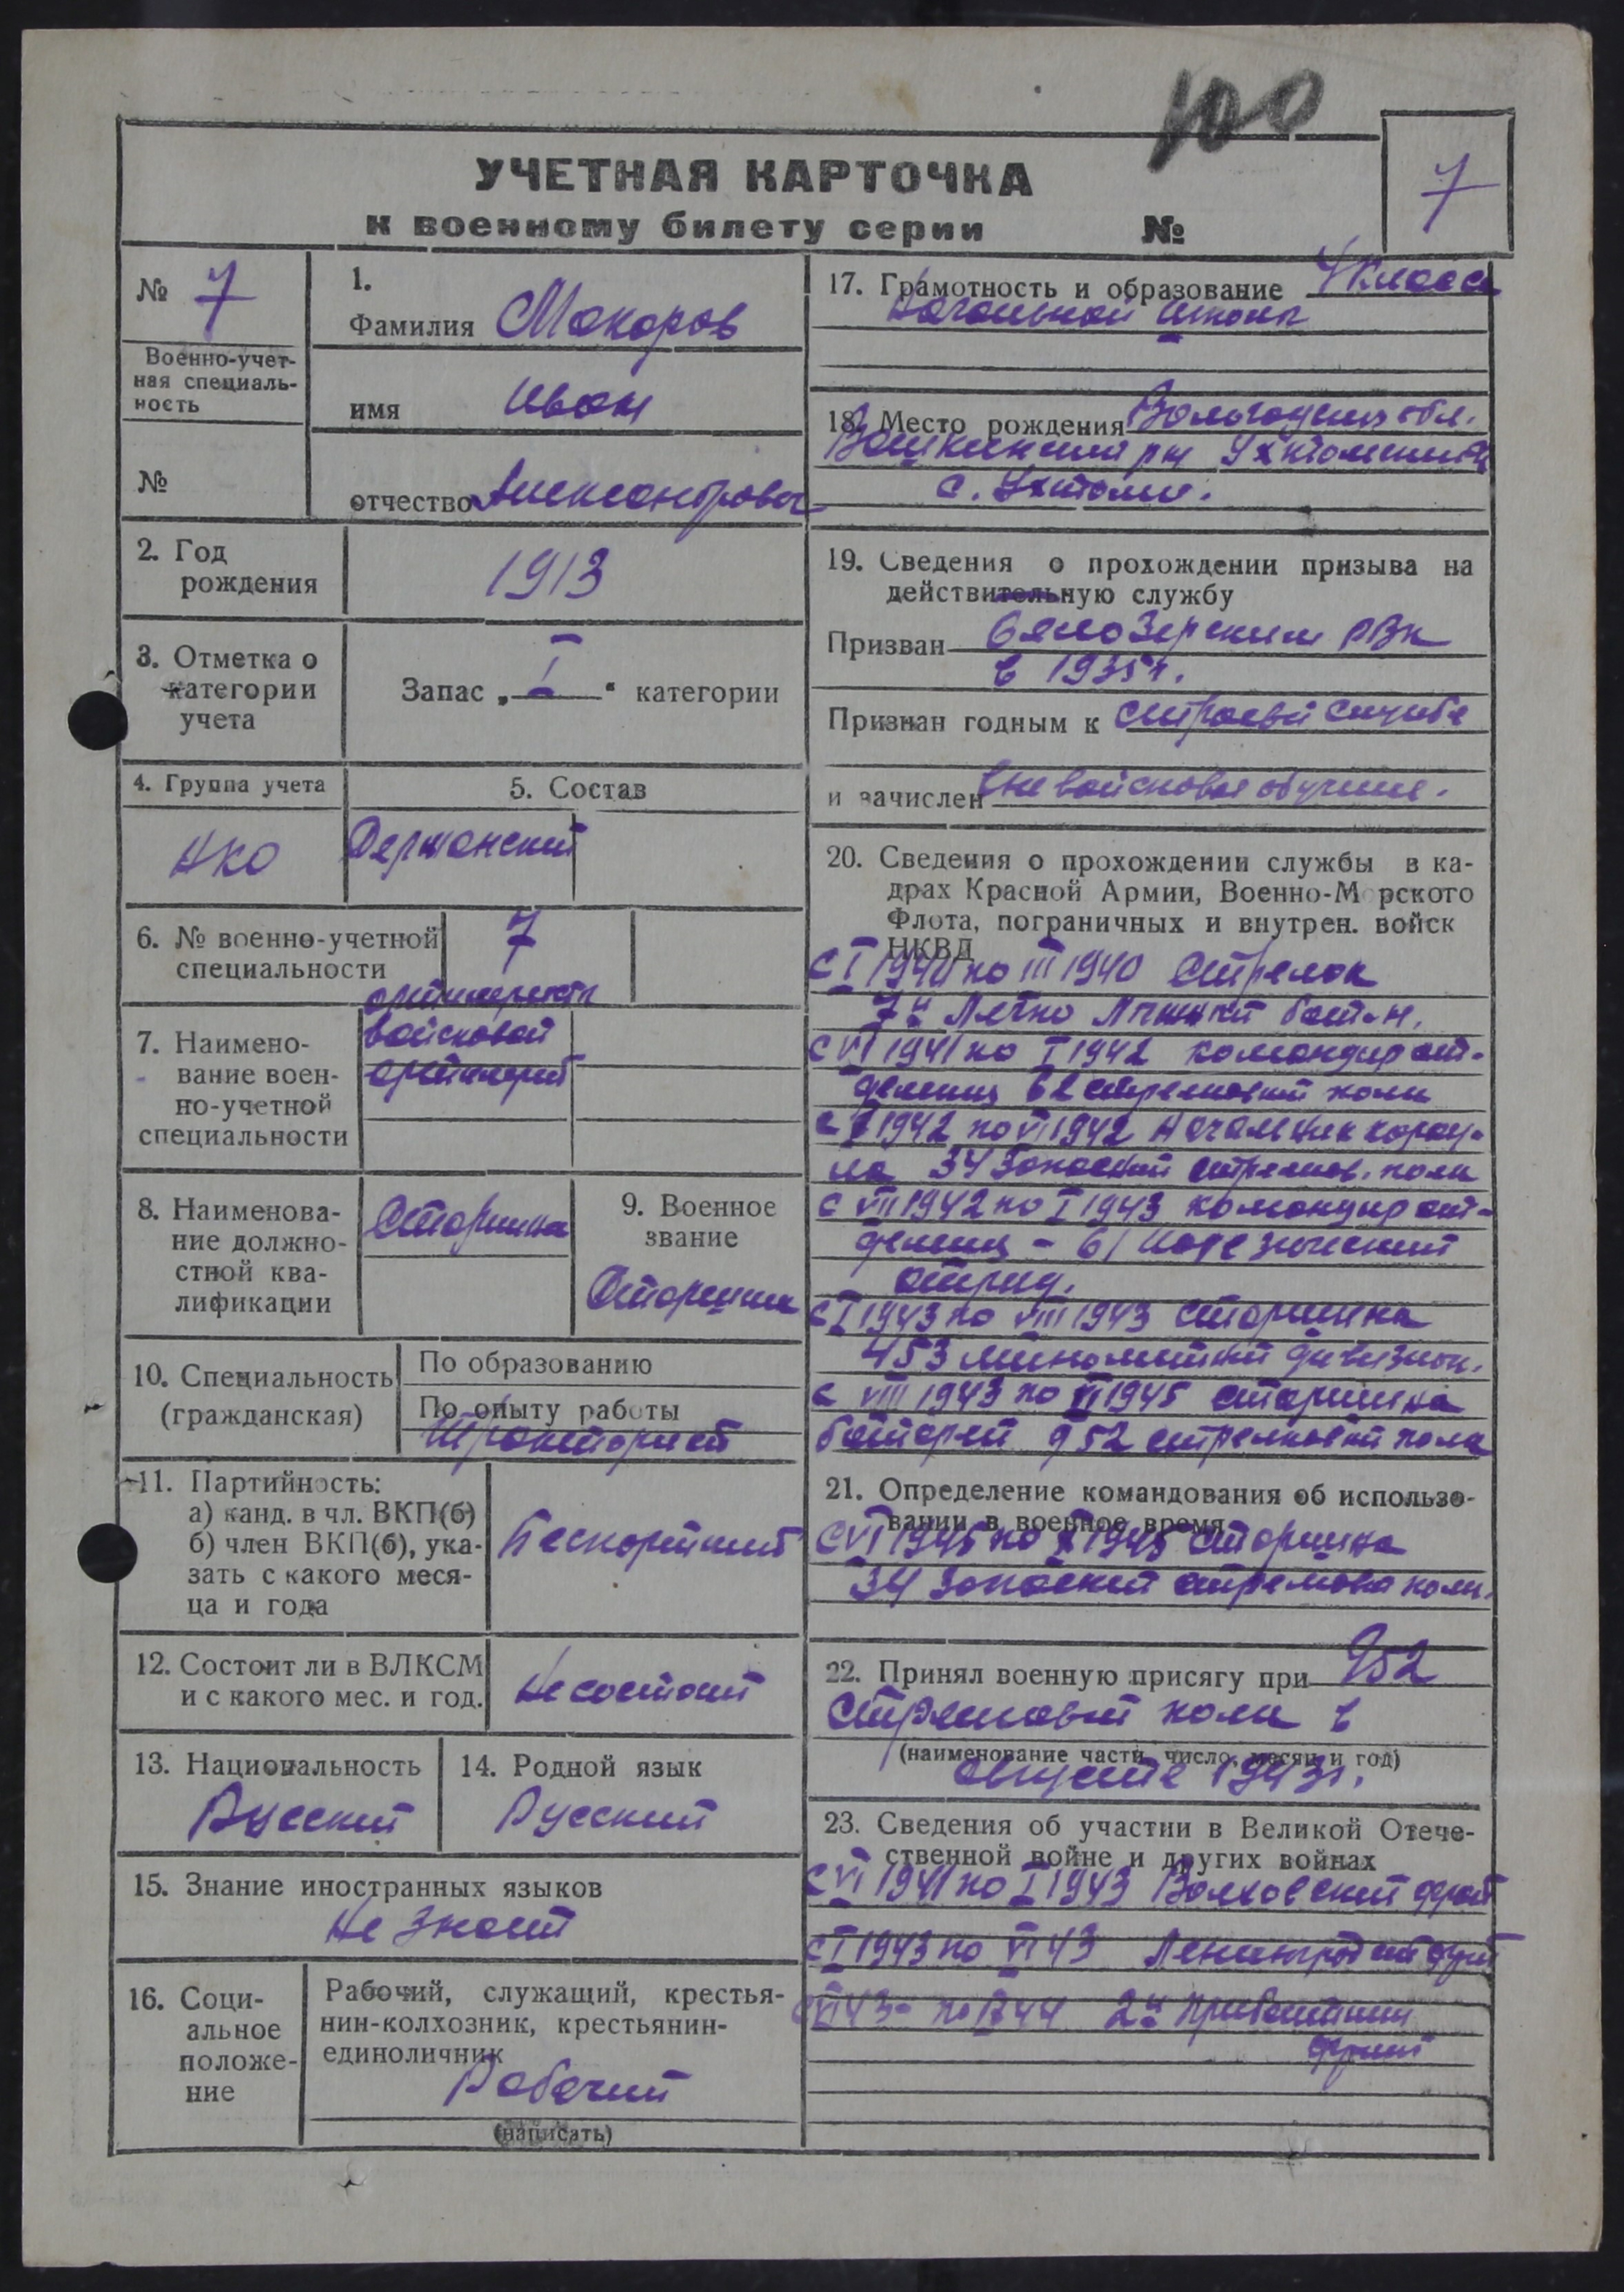 100
УЧЕТНАЯ КАРТОЧКА
к военному билету серии №
7
№ 7
Военно-учет-
ная специаль-
ность
№
1.
Фамилия Макаров
имя Иван
отчество Александрович
2. Год
рождения
1913
3. Отметка о
категории
учета
Запас „ I “ категории
4. Группа учета
НКО
5. Состав
Сержанский
6. № военно-учетной
специальности
7
7. Наимено-
вание воен-
но-учетной
специальности
артиллерист
войсковой
артиллерий
8. Наименова-
ние должно-
стной ква-
лификации
Старшина
9. Военное
звание
Старшина
10. Специальность
(гражданская)
По образованию
По опыту работы
Тракторист
11. Партийность:
а) канд. в чл. ВКП(б)
б) член ВКП(б), ука-
зать с какого меся-
ца и года
Беспартийный
12. Состоит ли в ВЛКСМ
и с какого мес. и год.
Не состоит
13. Национальность
Русский
14. Родной язык
Русский
15. Знание иностранных языков
Не знает
16. Соци-
альное
положе-
ние
Рабочий, служащий, крестья-
нин-колхозник, крестьянин-
единоличник
Рабочий
(написать)
17. Грамотность и образование 4 класса
Начальной школы
18. Место рождения Вологодская обл.
Вашкинский рн Ухтомский
с. Ухтома.
19. Сведения о прохождении призыва на
действительную службу
Призван Белозерским РВК
в 1935 г.
Признан годным к строевой службе
и зачислен вневойсковое обучение.
20. Сведения о прохождении службы в ка-
драх Красной Армии, Военно-Морского
Флота, пограничных и внутрен. войск
НКВД
С I 1940 по III 1940 Стрелок
7й Легко Лыжный бат-н.
С VI 1941 по I 1942 командир от-
деления 62 стрелковый полк
с I 1942 по VII 1942 Начальник карау-
ла 34 Запасной стрелков. полк
с VII 1942 по I 1943 командир от-
деления - 61
отряд.
с I 1943 по VIII 1943 Старшина
453 минометный дивизион.
с VIII 1943 по VI 1945 старшина
батареи 952 стрелковый полк
21. Определение командования об использо-
вании в военное время
С VI 1945 по X 1945 Старшина
34 Запасной стрелковый полк.
22. Принял военную присягу при 952
Стрелковый полк в
(наименование части, число, месяц и год)
августе 1943 г.
23. Сведения об участии в Великой Отече-
ственной войне и других войнах
С VI 1941 по I 1943 Волховский фронт
С I 1943 по VI 43 Ленинградский фронт
С VI 43 - по 44 2й Прибалтийский
фронт